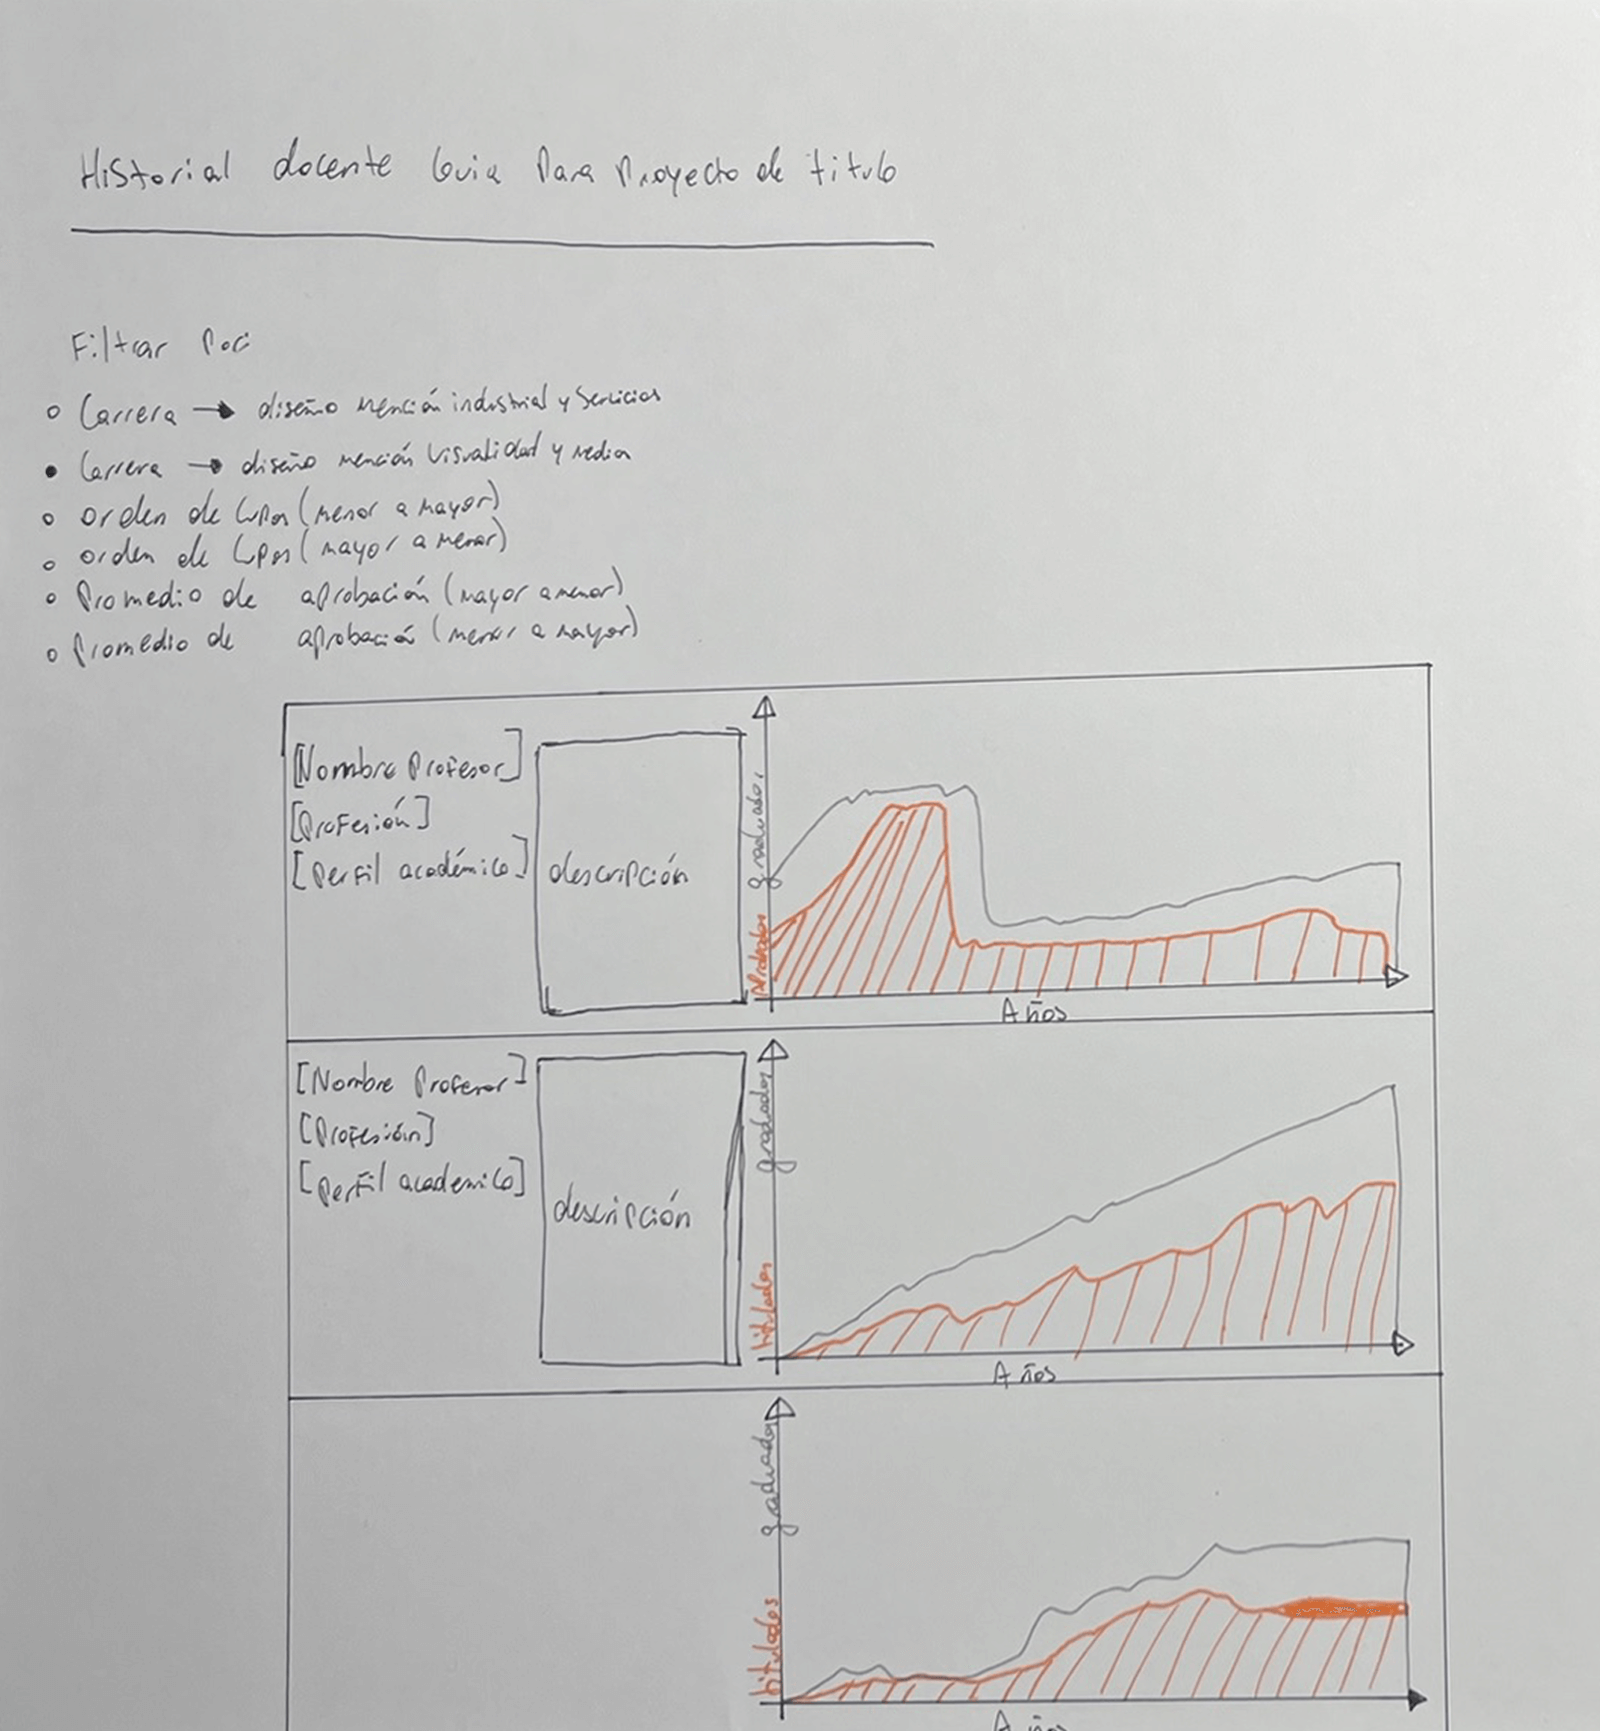 Historial docente Guia Para Proyecto de titulo
Filtrar Por:
Carrera → diseño mención industrial y Servicios
Carrera → diseño mención Visualidad y Media
orden de Cupos (menor a mayor)
orden de Cupos (mayor a menor)
Promedio de aprobación (mayor a menor)
Promedio de aprobación (menor a mayor)
[Nombre Profesor]
[Profesión]
[Perfil académico]
descripción
graduados
Años
[Nombre Profesor]
[Profesión]
[Perfil academico]
descripción
graduados
titulados
Años
graduados
titulados
Años